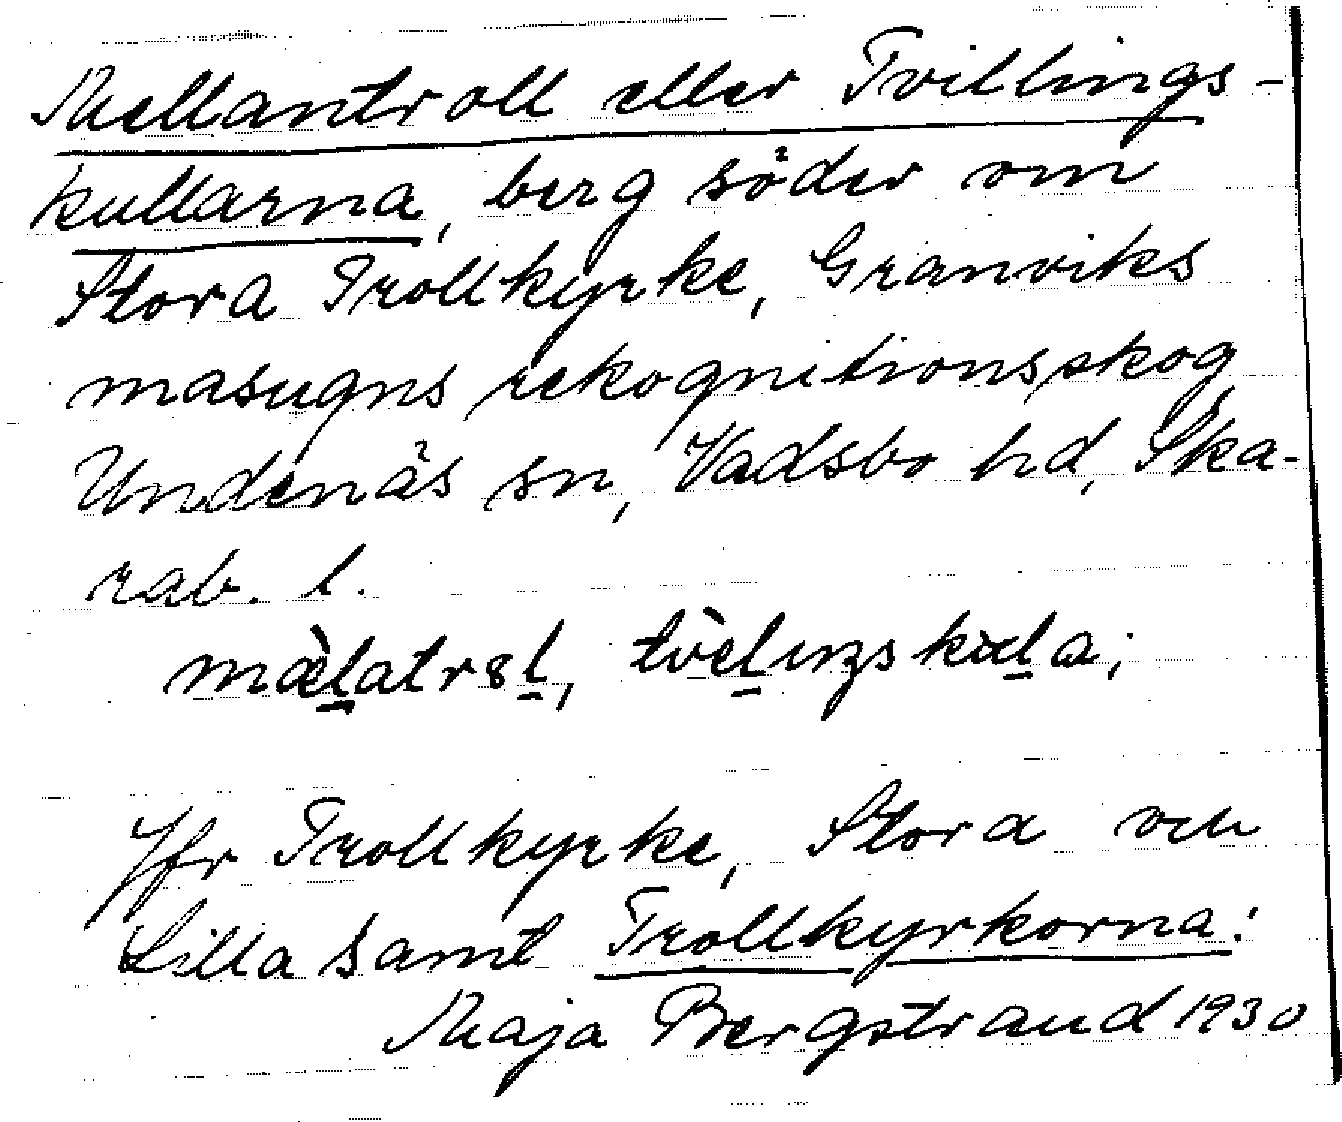 Mellantroll eller Tvillings-
kullarna, berg söder om
Stora Trollkyrke, Granviks
masugns rekognitionsskog,
Undenäs sn, Vadsbo hd, Ska-
rab. l.
Jfr Trollkyrke, Stora och
Lilla samt Trollkyrkorna!
Maja Bergstrand 1930